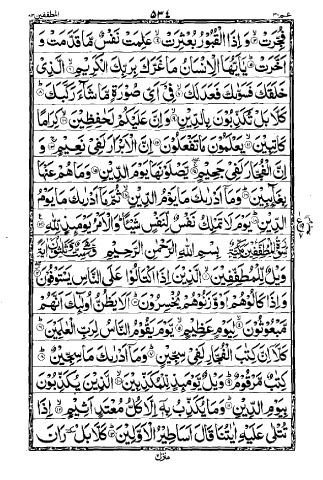 عم ٣٠ ٥٣٤ المطففين ٨٣
فُجِّرَتْ وَاِذَا الْقُبُوْرُ بُعْثِرَتْ عَلِمَتْ نَفْسٌ مَّا قَدَّمَتْ وَ
اَخَّرَتْ يٰۤاَيُّهَا الْاِنْسَانُ مَا غَرَّكَ بِرَبِّكَ الْكَرِيْمِ الَّذِيْ
خَلَقَكَ فَسَوّٰىكَ فَعَدَلَكَ فِيْۤ اَيِّ صُوْرَةٍ مَّا شَآءَ رَكَّبَكَ
كَلَّا بَلْ تُكَذِّبُوْنَ بِالدِّيْنِ وَاِنَّ عَلَيْكُمْ لَحٰفِظِيْنَ كِرَامًا
كَاتِبِيْنَ يَعْلَمُوْنَ مَا تَفْعَلُوْنَ اِنَّ الْاَبْرَارَ لَفِيْ نَعِيْمٍ وَ
اِنَّ الْفُجَّارَ لَفِيْ جَحِيْمٍ يَّصْلَوْنَهَا يَوْمَ الدِّيْنِ وَمَا هُمْ عَنْهَا
بِغَآئِبِيْنَ وَمَاۤ اَدْرٰىكَ مَا يَوْمُ الدِّيْنِ ثُمَّ مَاۤ اَدْرٰىكَ مَا يَوْمُ
الدِّيْنِ يَوْمَ لَا تَمْلِكُ نَفْسٌ لِّنَفْسٍ شَيْـًٔا وَالْاَمْرُ يَوْمَئِذٍ لِّلّٰهِ
بِسْمِ اللّٰهِ الرَّحْمٰنِ الرَّحِيْمِ
وَيْلٌ لِّلْمُطَفِّفِيْنَ الَّذِيْنَ اِذَا اكْتَالُوْا عَلَى النَّاسِ يَسْتَوْفُوْنَ
وَاِذَا كَالُوْهُمْ اَوْ وَّزَنُوْهُمْ يُخْسِرُوْنَ اَلَا يَظُنُّ اُولٰٓئِكَ اَنَّهُمْ
مَّبْعُوْثُوْنَ لِيَوْمٍ عَظِيْمٍ يَّوْمَ يَقُوْمُ النَّاسُ لِرَبِّ الْعٰلَمِيْنَ
كَلَّاۤ اِنَّ كِتٰبَ الْفُجَّارِ لَفِيْ سِجِّيْنٍ وَمَاۤ اَدْرٰىكَ مَا سِجِّيْنٌ
كِتٰبٌ مَّرْقُوْمٌ وَيْلٌ يَّوْمَئِذٍ لِّلْمُكَذِّبِيْنَ الَّذِيْنَ يُكَذِّبُوْنَ
بِيَوْمِ الدِّيْنِ وَمَا يُكَذِّبُ بِهٖۤ اِلَّا كُلُّ مُعْتَدٍ اَثِيْمٍ اِذَا
تُتْلٰى عَلَيْهِ اٰيٰتُنَا قَالَ اَسَاطِيْرُ الْاَوَّلِيْنَ كَلَّا بَلْ رَانَ
منزل